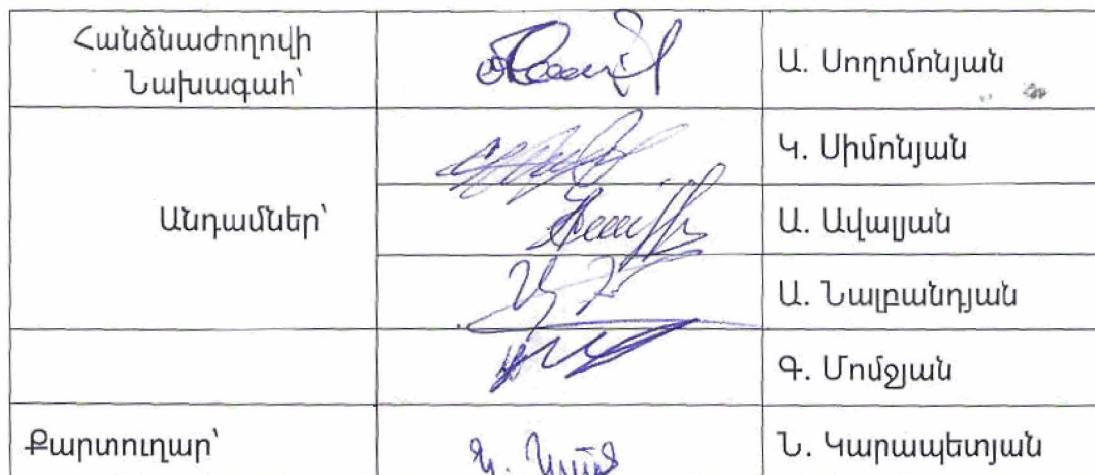 Հանձնաժողովի
Նախագահ՝
Ա. Սողոմոնյան
Կ. Սիմոնյան
Անդամներ՝
Ա. Ավալյան
Ա. Նալբանդյան
Գ. Մոմջյան
Քարտուղար՝
Ն. Կարապետյան